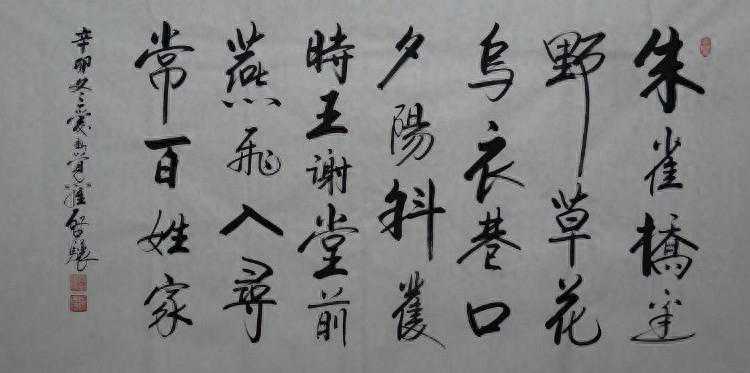 朱雀橋邊
野草花
烏衣巷口
夕陽斜舊
時王謝堂前
燕飛入尋
常百姓家
辛卯冬